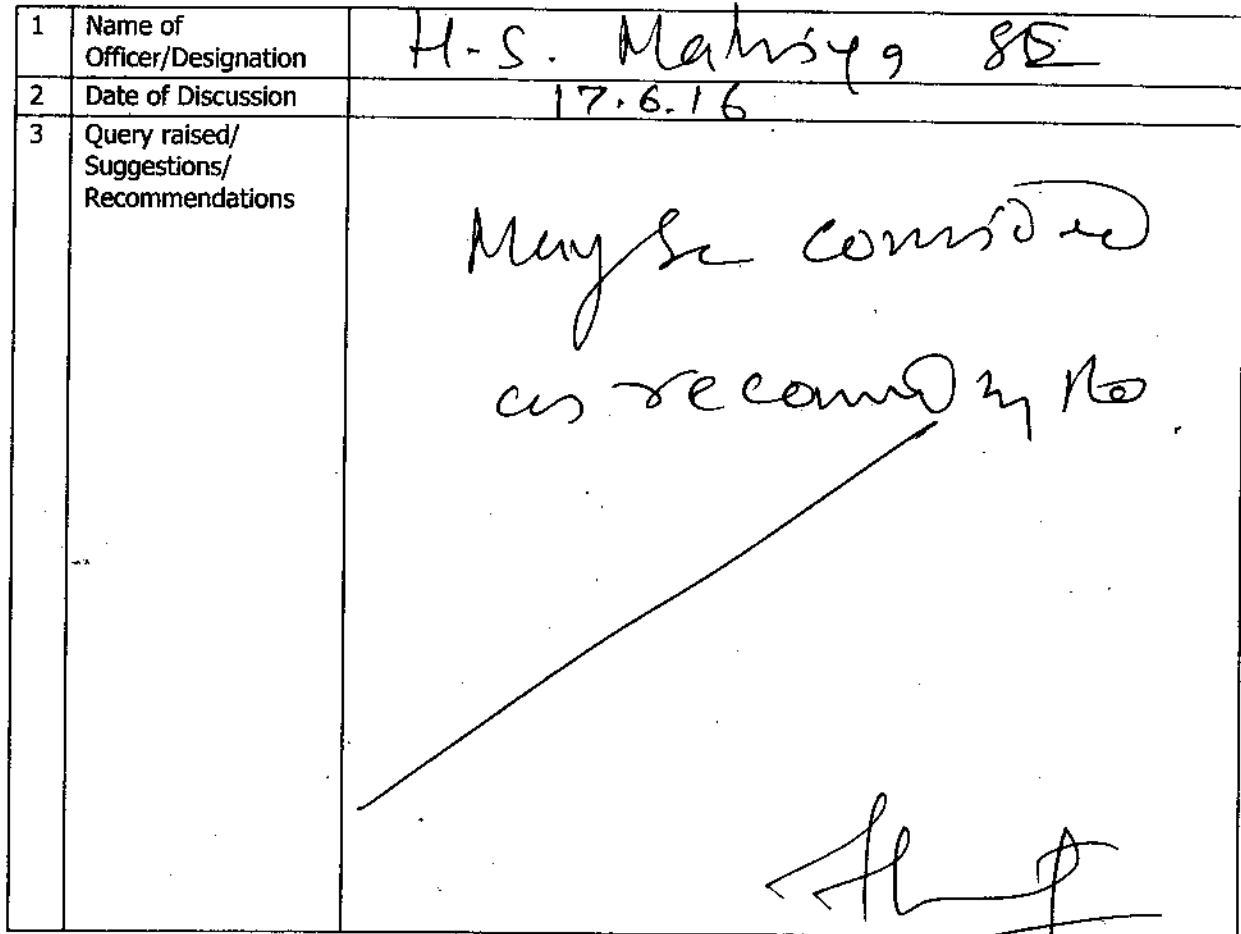 1 Name of Officer/Designation H-S. Mahisy, SE
2 Date of Discussion 17.6.16
3 Query raised/
Suggestions/
Recommendations
May be considered
as recomd by